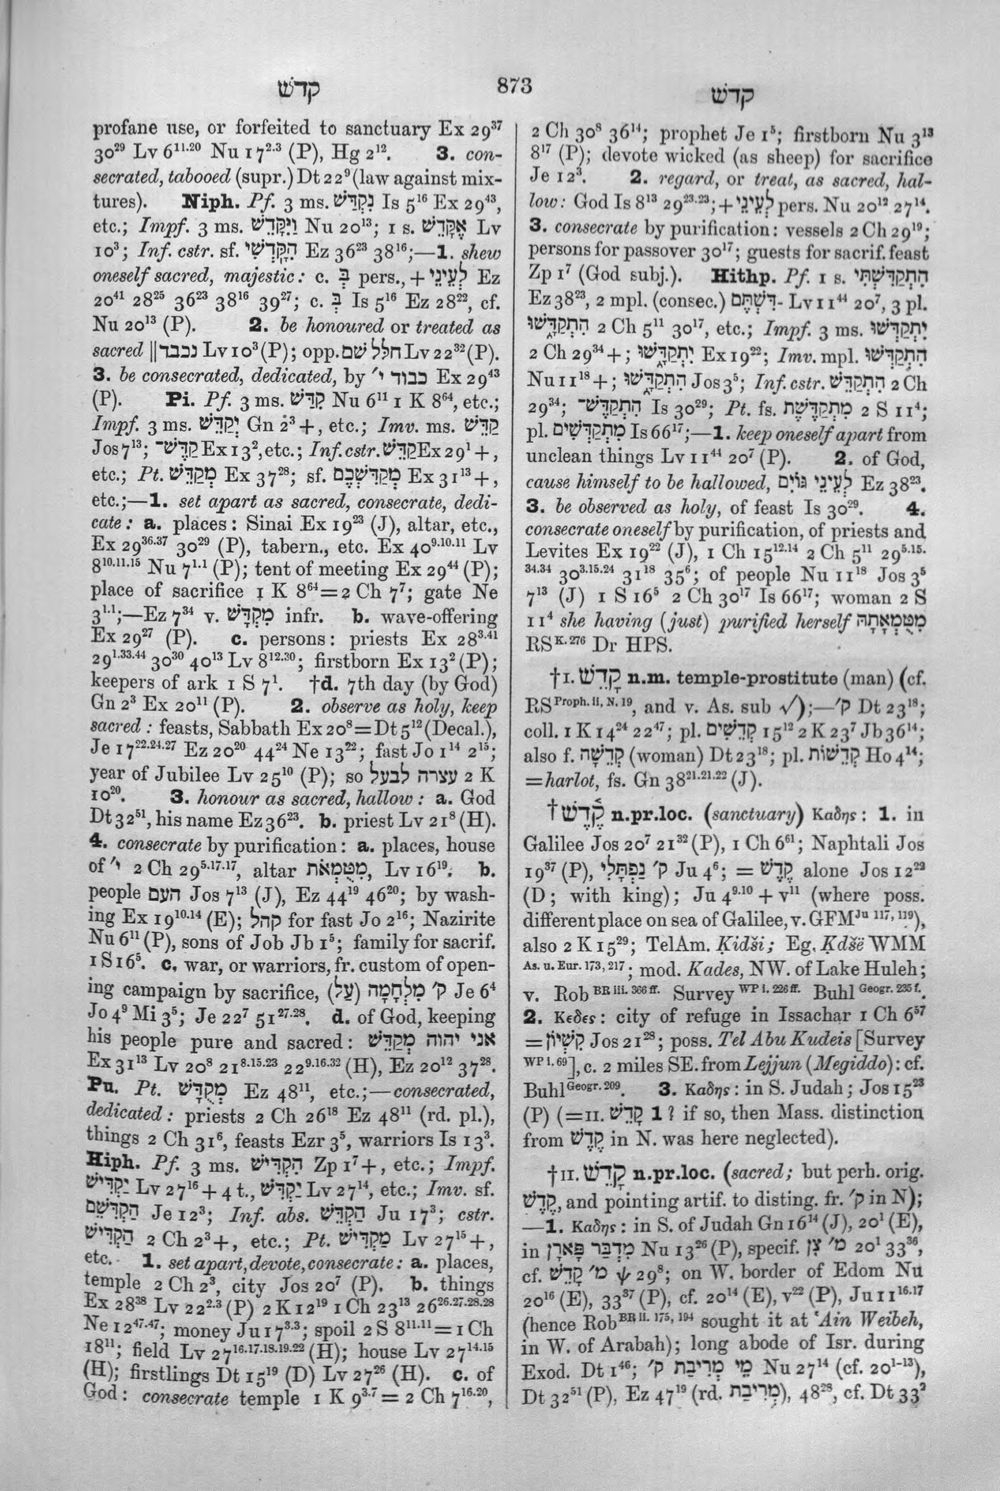 קדשׁ 873 קדשׁ
profane use, or forfeited to sanctuary Ex 29³⁷
30²⁹ Lv 6¹¹·²⁰ Nu 17²·³ (P), Hg 2¹². 3. con-
secrated, tabooed (supr.) Dt 22⁹ (law against mix-
tures). Niph. Pf. 3 ms. נִקְדַּשׁ Is 5¹⁶ Ex 29⁴³,
etc.; Impf. 3 ms. וַיִּקָּדֵשׁ Nu 20¹³; 1 s. אֶקָּדֵשׁ Lv
10³; Inf. cstr. sf. הִקָּדְשִׁי Ez 36²³ 38¹⁶;—1. shew
oneself sacred, majestic: c. בְּ pers., + לְעֵינֵי Ez
20⁴¹ 28²⁵ 36²³ 38¹⁶ 39²⁷; c. בְּ Is 5¹⁶ Ez 28²², cf.
Nu 20¹³ (P). 2. be honoured or treated as
sacred ‖ נכבד Lv 10³ (P); opp. חלל שׁם Lv 22³² (P).
3. be consecrated, dedicated, by כבוד י׳ Ex 29⁴³
(P). Pi. Pf. 3 ms. קִדַּשׁ Nu 6¹¹ 1 K 8⁶⁴, etc.;
Impf. 3 ms. יְקַדֵּשׁ Gn 2³ +, etc.; Imv. ms. קַדֵּשׁ
Jos 7¹³; קַדֶּשׁ־ Ex 13², etc.; Inf. cstr. קַדֵּשׁ Ex 29¹ +,
etc.; Pt. מְקַדֵּשׁ Ex 37²⁸; sf. מְקַדִּשְׁכֶם Ex 31¹³ +,
etc.;—1. set apart as sacred, consecrate, dedi-
cate: a. places: Sinai Ex 19²³ (J), altar, etc.,
Ex 29³⁶·³⁷ 30²⁹ (P), tabern., etc. Ex 40⁹·¹⁰·¹¹ Lv
8¹⁰·¹¹·¹⁵ Nu 7¹·¹ (P); tent of meeting Ex 29⁴⁴ (P);
place of sacrifice 1 K 8⁶⁴ = 2 Ch 7⁷; gate Ne
3¹·¹;—Ez 7³⁴ v. מִקְדָּשׁ infr. b. wave-offering
Ex 29²⁷ (P). c. persons: priests Ex 28³·⁴¹
29¹·³³·⁴⁴ 30³⁰ 40¹³ Lv 8¹²·³⁰; firstborn Ex 13² (P);
keepers of ark 1 S 7¹. †d. 7th day (by God)
Gn 2³ Ex 20¹¹ (P). 2. observe as holy, keep
sacred: feasts, Sabbath Ex 20⁸ = Dt 5¹² (Decal.),
Je 17²²·²⁴·²⁷ Ez 20²⁰ 44²⁴ Ne 13²²; fast Jo 1¹⁴ 2¹⁵;
year of Jubilee Lv 25¹⁰ (P); so עצרה לבעל 2 K
10²⁰. 3. honour as sacred, hallow: a. God
Dt 32⁵¹, his name Ez 36²³. b. priest Lv 21⁸ (H).
4. consecrate by purification: a. places, house
of י׳ 2 Ch 29⁵·¹⁷·¹⁷, altar מִטֻּמְאֹת, Lv 16¹⁹. b.
people העם Jos 7¹³ (J), Ez 44¹⁹ 46²⁰; by wash-
ing Ex 19¹⁰·¹⁴ (E); קהל for fast Jo 2¹⁶; Nazirite
Nu 6¹¹ (P), sons of Job Jb 1⁵; family for sacrif.
1 S 16⁵. c. war, or warriors, fr. custom of open-
ing campaign by sacrifice, (עַל) ק׳ מִלְחָמָה Je 6⁴
Jo 4⁹ Mi 3⁵; Je 22⁷ 51²⁷·²⁸. d. of God, keeping
his people pure and sacred: אני יהוה מְקַדֵּשׁ
Ex 31¹³ Lv 20⁸ 21⁸·¹⁵·²³ 22⁹·¹⁶·³² (H), Ez 20¹² 37²⁸.
Pu. Pt. מְקֻדָּשׁ Ez 48¹¹, etc.;—consecrated,
dedicated: priests 2 Ch 26¹⁸ Ez 48¹¹ (rd. pl.),
things 2 Ch 31⁶, feasts Ezr 3⁵, warriors Is 13³.
Hiph. Pf. 3 ms. הִקְדִּישׁ Zp 1⁷ +, etc.; Impf.
יַקְדִּישׁ Lv 27¹⁶ + 4 t., יַקְדִּשׁ Lv 27¹⁴, etc.; Imv. sf.
הַקְדִּשֵׁם Je 12³; Inf. abs. הַקְדֵּשׁ Ju 17³; cstr.
הַקְדִּישׁ 2 Ch 2³ +, etc.; Pt. מַקְדִּישׁ Lv 27¹⁵ +,
etc. 1. set apart, devote, consecrate: a. places,
temple 2 Ch 2³, city Jos 20⁷ (P). b. things
Ex 28³⁸ Lv 22²·³ (P) 2 K 12¹⁹ 1 Ch 23¹³ 26²⁶·²⁷·²⁸·²⁸
Ne 12⁴⁷·⁴⁷; money Ju 17³·³; spoil 2 S 8¹¹·¹¹ = 1 Ch
18¹¹; field Lv 27¹⁶·¹⁷·¹⁸·¹⁹·²² (H); house Lv 27¹⁴·¹⁵
(H); firstlings Dt 15¹⁹ (D) Lv 27²⁶ (H). c. of
God: consecrate temple 1 K 9³·⁷ = 2 Ch 7¹⁶·²⁰,
2 Ch 30⁸ 36¹⁴; prophet Je 1⁵; firstborn Nu 3¹³
8¹⁷ (P); devote wicked (as sheep) for sacrifice
Je 12³. 2. regard, or treat, as sacred, hal-
low: God Is 8¹³ 29²³·²³; + לְעֵינֵי pers. Nu 20¹² 27¹⁴.
3. consecrate by purification: vessels 2 Ch 29¹⁹;
persons for passover 30¹⁷; guests for sacrif. feast
Zp 1⁷ (God subj.). Hithp. Pf. 1 s. הִתְקַדִּשְׁתִּי
Ez 38²³, 2 mpl. (consec.) ־דִּשְׁתֶּם Lv 11⁴⁴ 20⁷, 3 pl.
הִתְקַדָּשׁוּ 2 Ch 5¹¹ 30¹⁷, etc.; Impf. 3 ms. יִתְקַדְּשׁוּ
2 Ch 29³⁴ +; יִתְקַדָּשׁוּ Ex 19²²; Imv. mpl. הִתְקַדְּשׁוּ
Nu 11¹⁸ +; הִתְקַדָּשׁוּ Jos 3⁵; Inf. cstr. הִתְקַדֵּשׁ 2 Ch
29³⁴; הִתְקַדֶּשׁ־ Is 30²⁹; Pt. fs. מִתְקַדֶּשֶׁת 2 S 11⁴;
pl. מִתְקַדְּשִׁים Is 66¹⁷;—1. keep oneself apart from
unclean things Lv 11⁴⁴ 20⁷ (P). 2. of God,
cause himself to be hallowed, לְעֵינֵי גּוֹיִם Ez 38²³.
3. be observed as holy, of feast Is 30²⁹. 4.
consecrate oneself by purification, of priests and
Levites Ex 19²² (J), 1 Ch 15¹²·¹⁴ 2 Ch 5¹¹ 29⁵·¹⁵·
³⁴·³⁴ 30³·¹⁵·²⁴ 31¹⁸ 35⁶; of people Nu 11¹⁸ Jos 3⁵
7¹³ (J) 1 S 16⁵ 2 Ch 30¹⁷ Is 66¹⁷; woman 2 S
11⁴ she having (just) purified herself מִטֻּמְאָתָהּ
RS K. 276 Dr HPS.
†I. קָדֵשׁ n.m. temple-prostitute (man) (cf.
RS Proph. ii, N. 19, and v. As. sub √);—ק׳ Dt 23¹⁸;
coll. 1 K 14²⁴ 22⁴⁷; pl. קְדֵשִׁים 15¹² 2 K 23⁷ Jb 36¹⁴;
also f. קְדֵשָׁה (woman) Dt 23¹⁸; pl. קְדֵשׁוֹת Ho 4¹⁴;
= harlot, fs. Gn 38²¹·²¹·²² (J).
†קֶ֫דֶשׁ n.pr.loc. (sanctuary) Καδης: 1. in
Galilee Jos 20⁷ 21³² (P), 1 Ch 6⁶¹; Naphtali Jos
19³⁷ (P), ק׳ נַפְתָּלִי Ju 4⁶; = קֶדֶשׁ alone Jos 12²²
(D; with king); Ju 4⁹·¹⁰ + v¹¹ (where poss.
different place on sea of Galilee, v. GFM Ju 117, 119),
also 2 K 15²⁹; TelAm. Ḳidši; Eg. Ḳdšë WMM
As. u. Eur. 173, 217; mod. Kades, NW. of Lake Huleh;
v. Rob BR iii. 366 ff. Survey WP i. 226 ff. Buhl Geogr. 235 f.
2. Κεδες: city of refuge in Issachar 1 Ch 6⁵⁷
= קִשְׁיוֹן Jos 21²⁸; poss. Tel Abu Kudeis [Survey
WP i. 69], c. 2 miles SE. from Lejjun (Megiddo): cf.
Buhl Geogr. 209. 3. Καδης: in S. Judah; Jos 15²³
(P) (= II. קָדֵשׁ 1? if so, then Mass. distinction
from קֶדֶשׁ in N. was here neglected).
†II. קָדֵשׁ n.pr.loc. (sacred; but perh. orig.
קֶדֶשׁ, and pointing artif. to disting. fr. ק׳ in N);
—1. Καδης: in S. of Judah Gn 16¹⁴ (J), 20¹ (E),
in מִדְבַּר פָּארָן Nu 13²⁶ (P), specif. מ׳ צִן 20¹ 33³⁶,
cf. מ׳ קָדֵשׁ ψ 29⁸; on W. border of Edom Nu
20¹⁶ (E), 33³⁷ (P), cf. 20¹⁴ (E), v²² (P), Ju 11¹⁶·¹⁷
(hence Rob BR ii. 175, 194 sought it at ʿAin Weibeh,
in W. of Arabah); long abode of Isr. during
Exod. Dt 1⁴⁶; מֵי מְרִיבַת ק׳ Nu 27¹⁴ (cf. 20¹⁻¹³),
Dt 32⁵¹ (P), Ez 47¹⁹ (rd. מְרִיבַת), 48²⁸, cf. Dt 33²